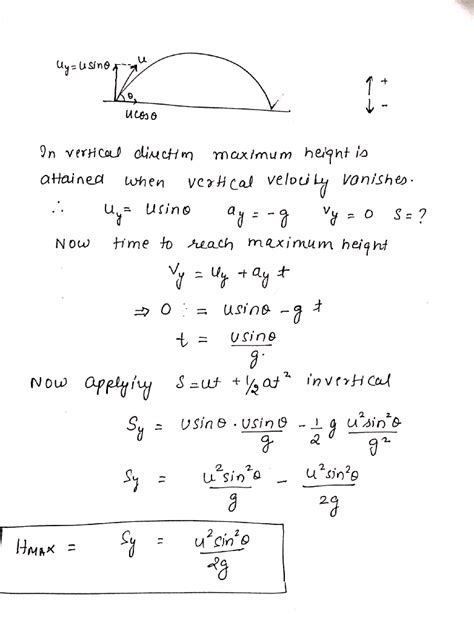 uy = usinθ u
θ
ucosθ
↑ +
↓ -
In vertical direction maximum height is
attained when vertical velocity vanishes.
∴ uy = usinθ ay = -g vy = 0 S = ?
Now time to reach maximum height
Vy = uy + ay t
⇒ 0 = usinθ - g t
t = usinθ/g.
Now applying S = ut + 1/2 at² in vertical
Sy = usinθ · usinθ/g - 1/2 g u²sin²θ/g²
Sy = u²sin²θ/g - u²sin²θ/2g
HMAX = Sy = u²sin²θ/2g